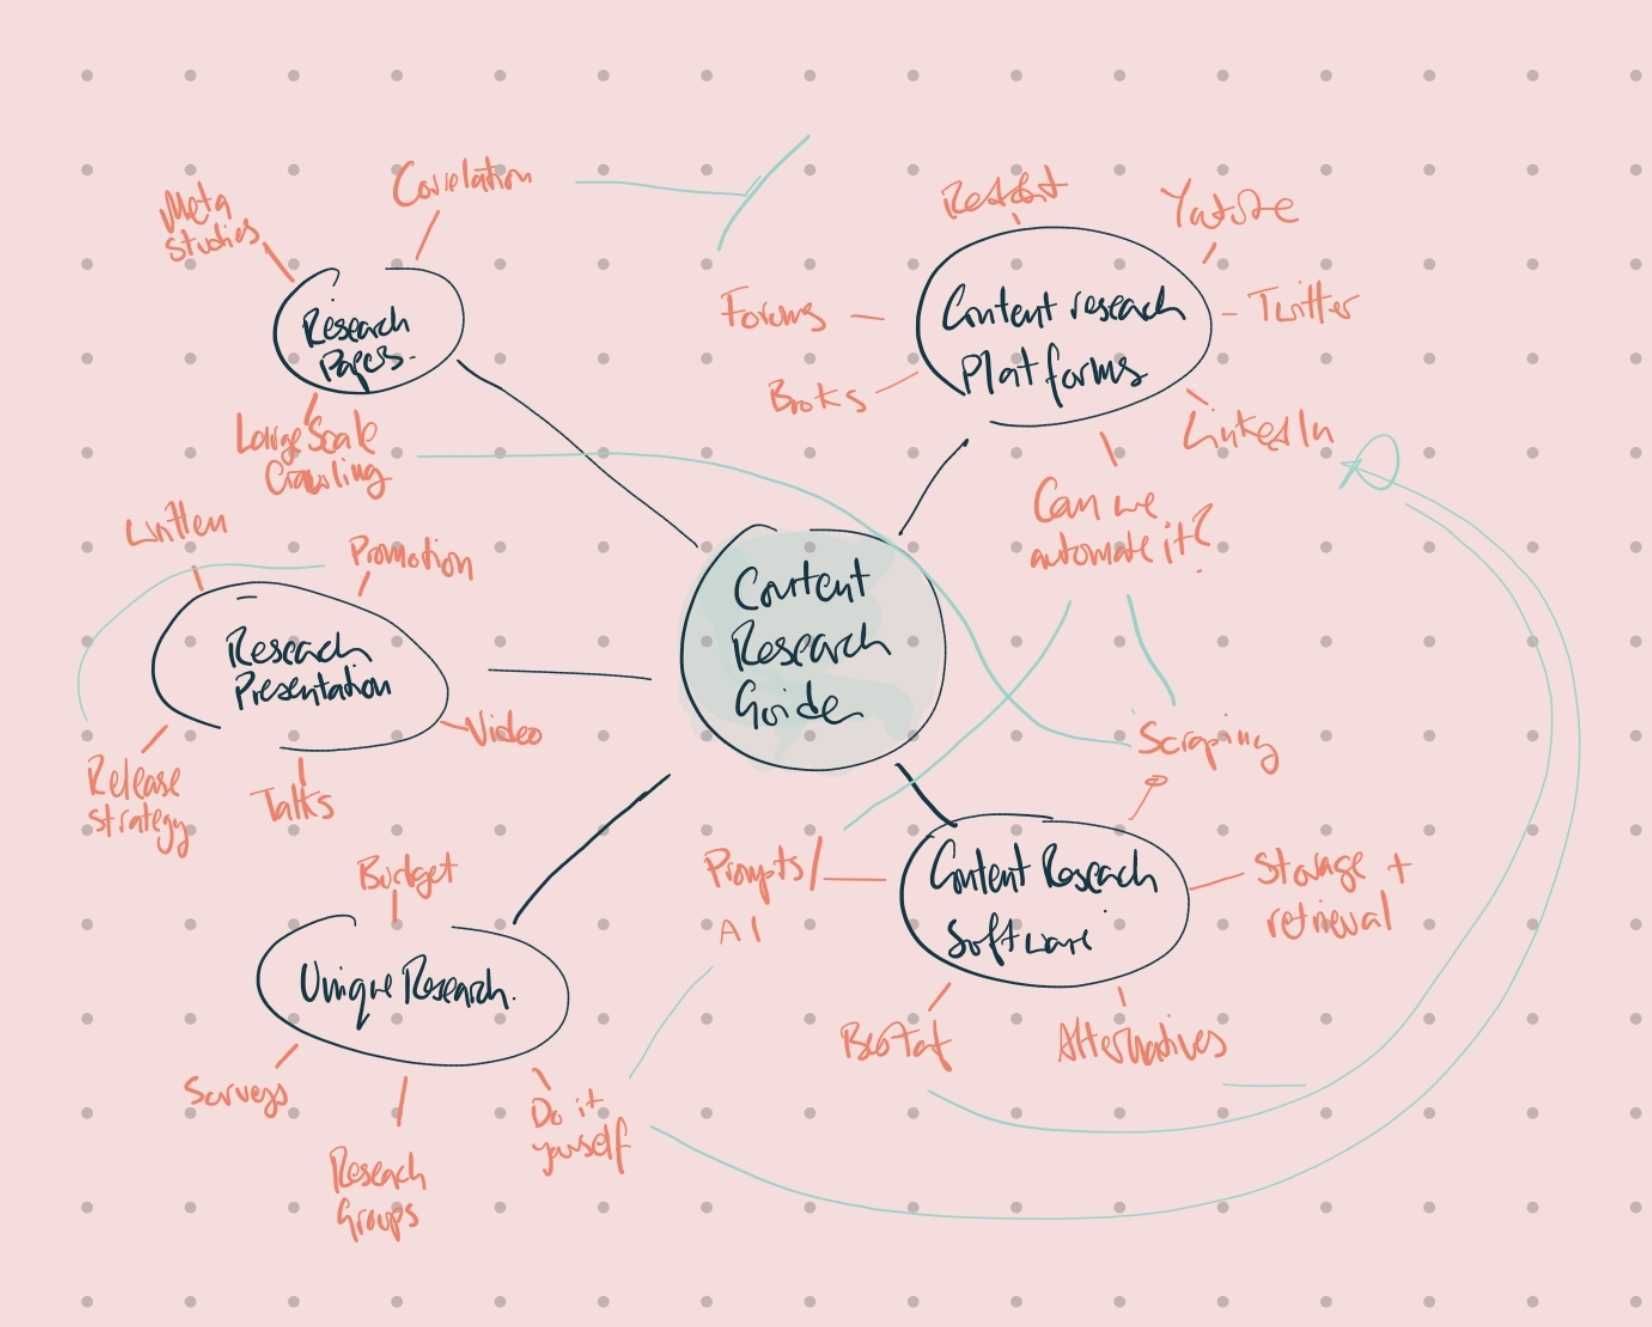 Meta
Studies
Correlation
Research
Papers.
Large Scale
Crawling
Reddit
Youtube
Forums
Content research
Platforms
Twitter
Books
LinkedIn
Can we
automate it?
Written
Promotion
Research
Presentation
Video
Release
strategy
Talks
Content
Research
Guide
Scraping
Prompts/
AI
Content Research
Software
Storage +
retrieval
Alternatives
Budget
Unique Research.
Surveys
Research
Groups
Do it
yourself